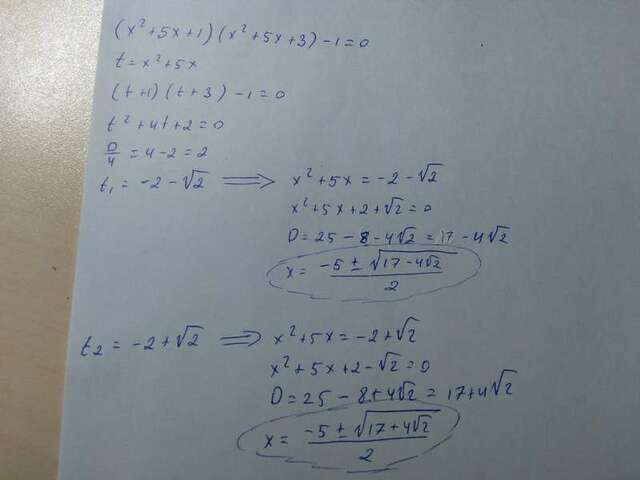 (x²+5x+1)(x²+5x+3)-1=0
t=x²+5x
(t+1)(t+3)-1=0
t²+4t+2=0
D/4=4-2=2
t₁=-2-√2 ⟹ x²+5x=-2-√2
x²+5x+2+√2=0
D=25-8-4√2=17-4√2
x=(-5±√(17-4√2))/2
t₂=-2+√2 ⟹ x²+5x=-2+√2
x²+5x+2-√2=0
D=25-8+4√2=17+4√2
x=(-5±√(17+4√2))/2